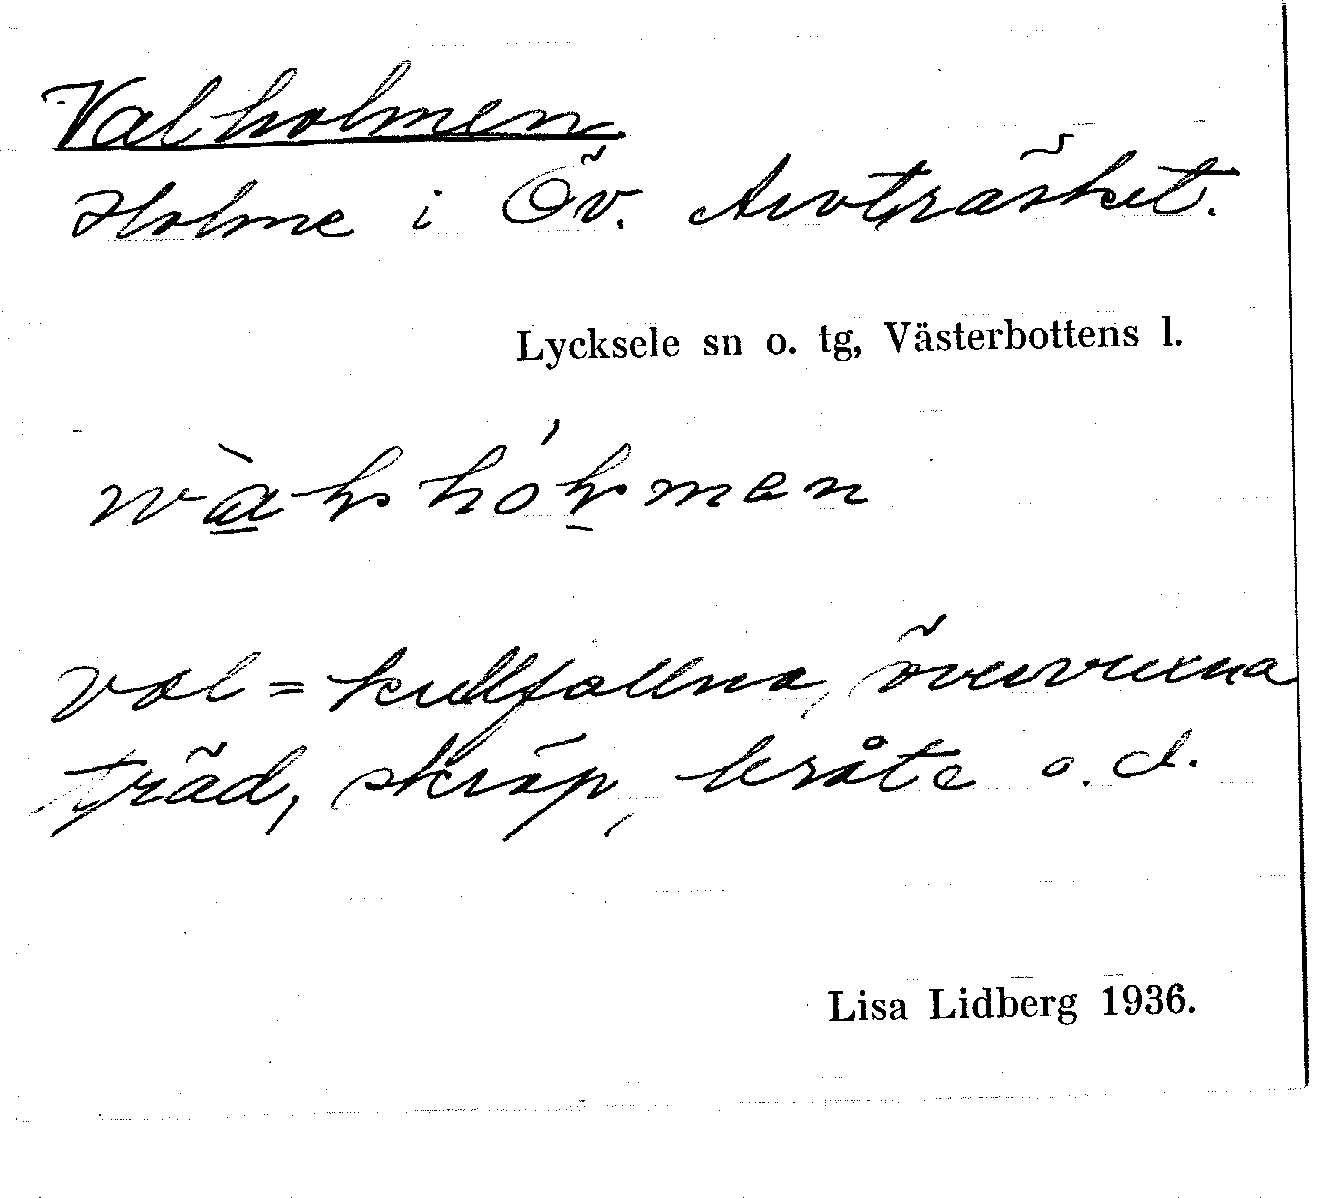 Valholmen
Holme i Öv. Arvträsket.
Lycksele sn o. tg, Västerbottens l.
val = kullfallna, övervuxna
träd, skräp, bråte o. d.
Lisa Lidberg 1936.